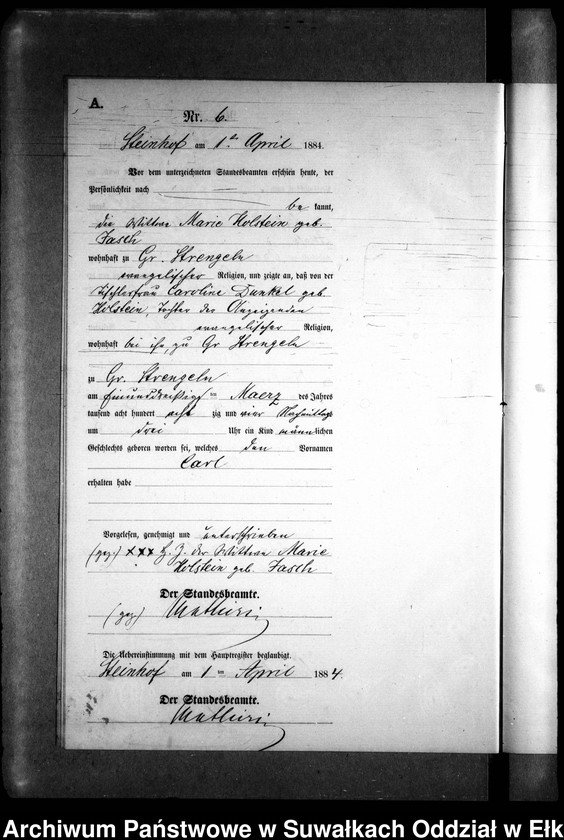 A.
Nr. 6.
Steinhof am 1ten April 1884.
Vor dem unterzeichneten Standesbeamten erschien heute, der
Persönlichkeit nach
be kannt,
die Wittwe Marie Holstein geb.
Jasch
wohnhaft zu Gr. Strengeln
evangelischer Religion, und zeigte an, daß von der
Tischlerfrau Caroline Dunkel geb.
Holstein, Tochter der Anzeigenden
evangelischer Religion,
wohnhaft bei ihr, zu Gr Strengeln
zu Gr. Strengeln
am einunddreißigsten Maerz des Jahres
tausend acht hundert acht zig und vier Nachmittags
um drei Uhr ein Kind männlichen
Geschlechts geboren worden sei, welches den Vornamen
Carl
erhalten habe
Vorgelesen, genehmigt und unterschrieben
(gez.) XXX H. Z. der Wittwe Marie
Holstein geb. Jasch
Der Standesbeamte.
(gez.)
Die Uebereinstimmung mit dem Hauptregister beglaubigt.
Steinhof am 1ten April 1884.
Der Standesbeamte.
Archiwum Państwowe w Suwałkach Oddział w Ełk